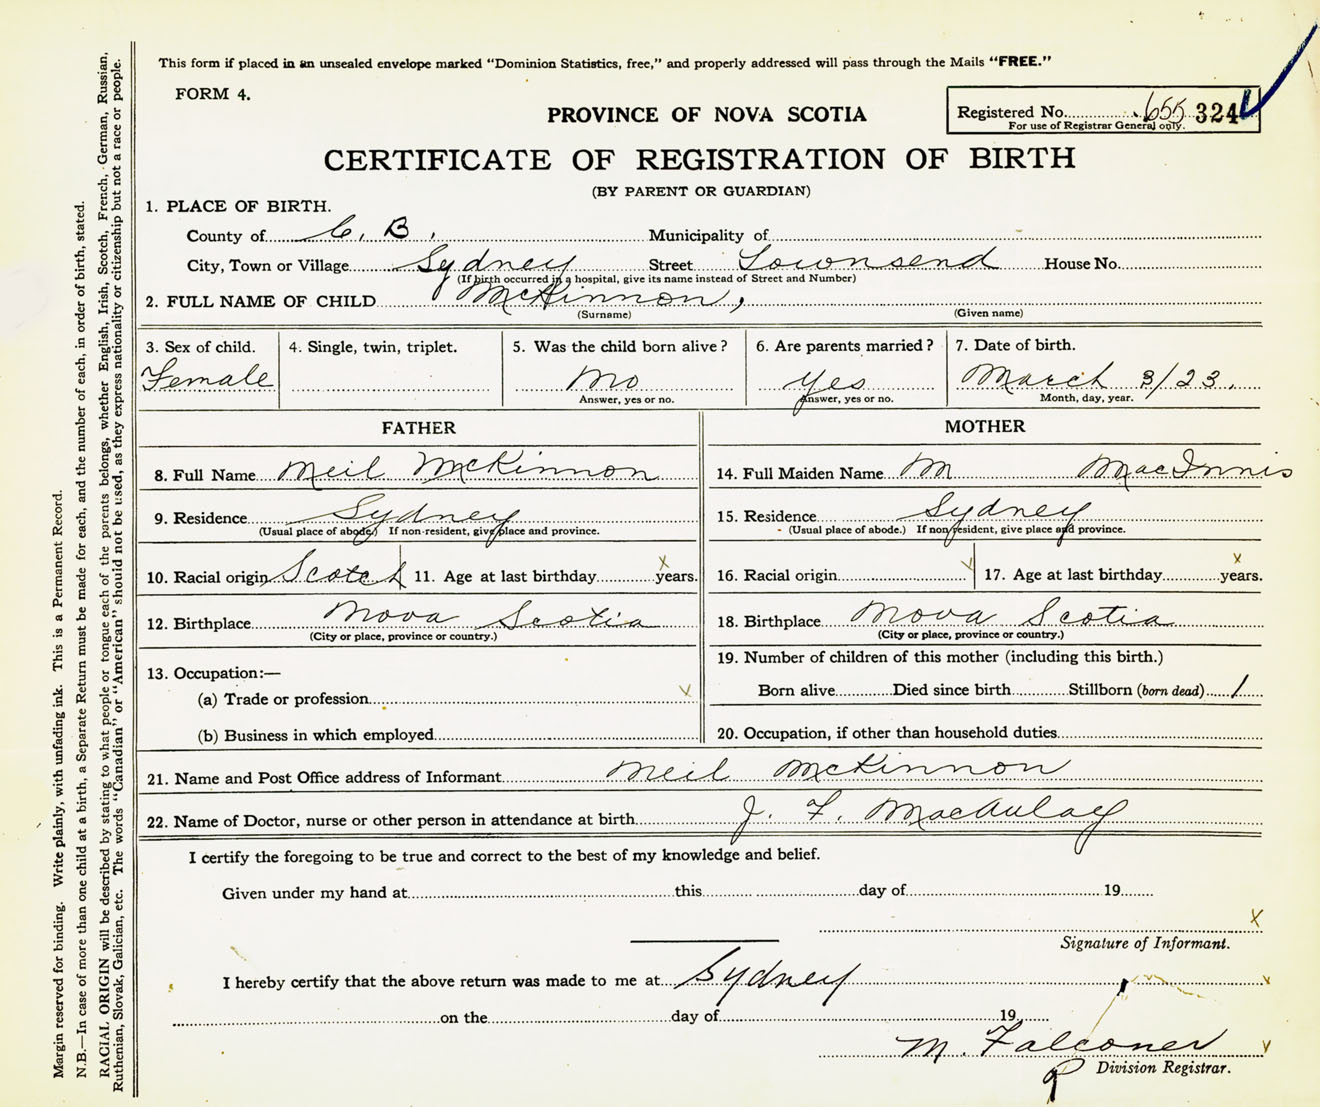 This form if placed in an unsealed envelope marked "Dominion Statistics, free," and properly addressed will pass through the Mails "FREE."
FORM 4.
PROVINCE OF NOVA SCOTIA
Registered No. 655 324
For use of Registrar General only.
CERTIFICATE OF REGISTRATION OF BIRTH
(BY PARENT OR GUARDIAN)
1. PLACE OF BIRTH.
County of C. B. Municipality of
City, Town or Village Sydney Street Townsend House No.
(If birth occurred in a hospital, give its name instead of Street and Number)
2. FULL NAME OF CHILD McKinnon,
(Surname) (Given name)
3. Sex of child. 4. Single, twin, triplet. 5. Was the child born alive? 6. Are parents married? 7. Date of birth.
Female No Yes March 3/23.
Answer, yes or no. Answer, yes or no. Month, day, year.
FATHER MOTHER
8. Full Name Neil McKinnon 14. Full Maiden Name M MacInnis
9. Residence Sydney 15. Residence Sydney
(Usual place of abode.) If non-resident, give place and province. (Usual place of abode.) If non-resident, give place and province.
10. Racial origin Scotch 11. Age at last birthday x years. 16. Racial origin 17. Age at last birthday x years.
12. Birthplace Nova Scotia 18. Birthplace Nova Scotia
(City or place, province or country.) (City or place, province or country.)
13. Occupation:— 19. Number of children of this mother (including this birth.)
(a) Trade or profession Born alive Died since birth Stillborn (born dead) 1
(b) Business in which employed 20. Occupation, if other than household duties
21. Name and Post Office address of Informant Neil McKinnon
22. Name of Doctor, nurse or other person in attendance at birth J. F. MacAulay
I certify the foregoing to be true and correct to the best of my knowledge and belief.
Given under my hand at this day of 19
x
Signature of Informant.
I hereby certify that the above return was made to me at Sydney
on the day of 19
M. Falconer
Division Registrar.
Margin reserved for binding. Write plainly, with unfading ink. This is a Permanent Record.
N.B.—In case of more than one child at a birth, a Separate Return must be made for each, and the number of each, in order of birth, stated.
RACIAL ORIGIN will be described by stating to what people or tongue each of the parents belongs, whether English, Irish, Scotch, French, German, Russian,
Ruthenian, Slovak, Galician, etc. The words "Canadian" or "American" should not be used, as they express nationality or citizenship but not a race or people.